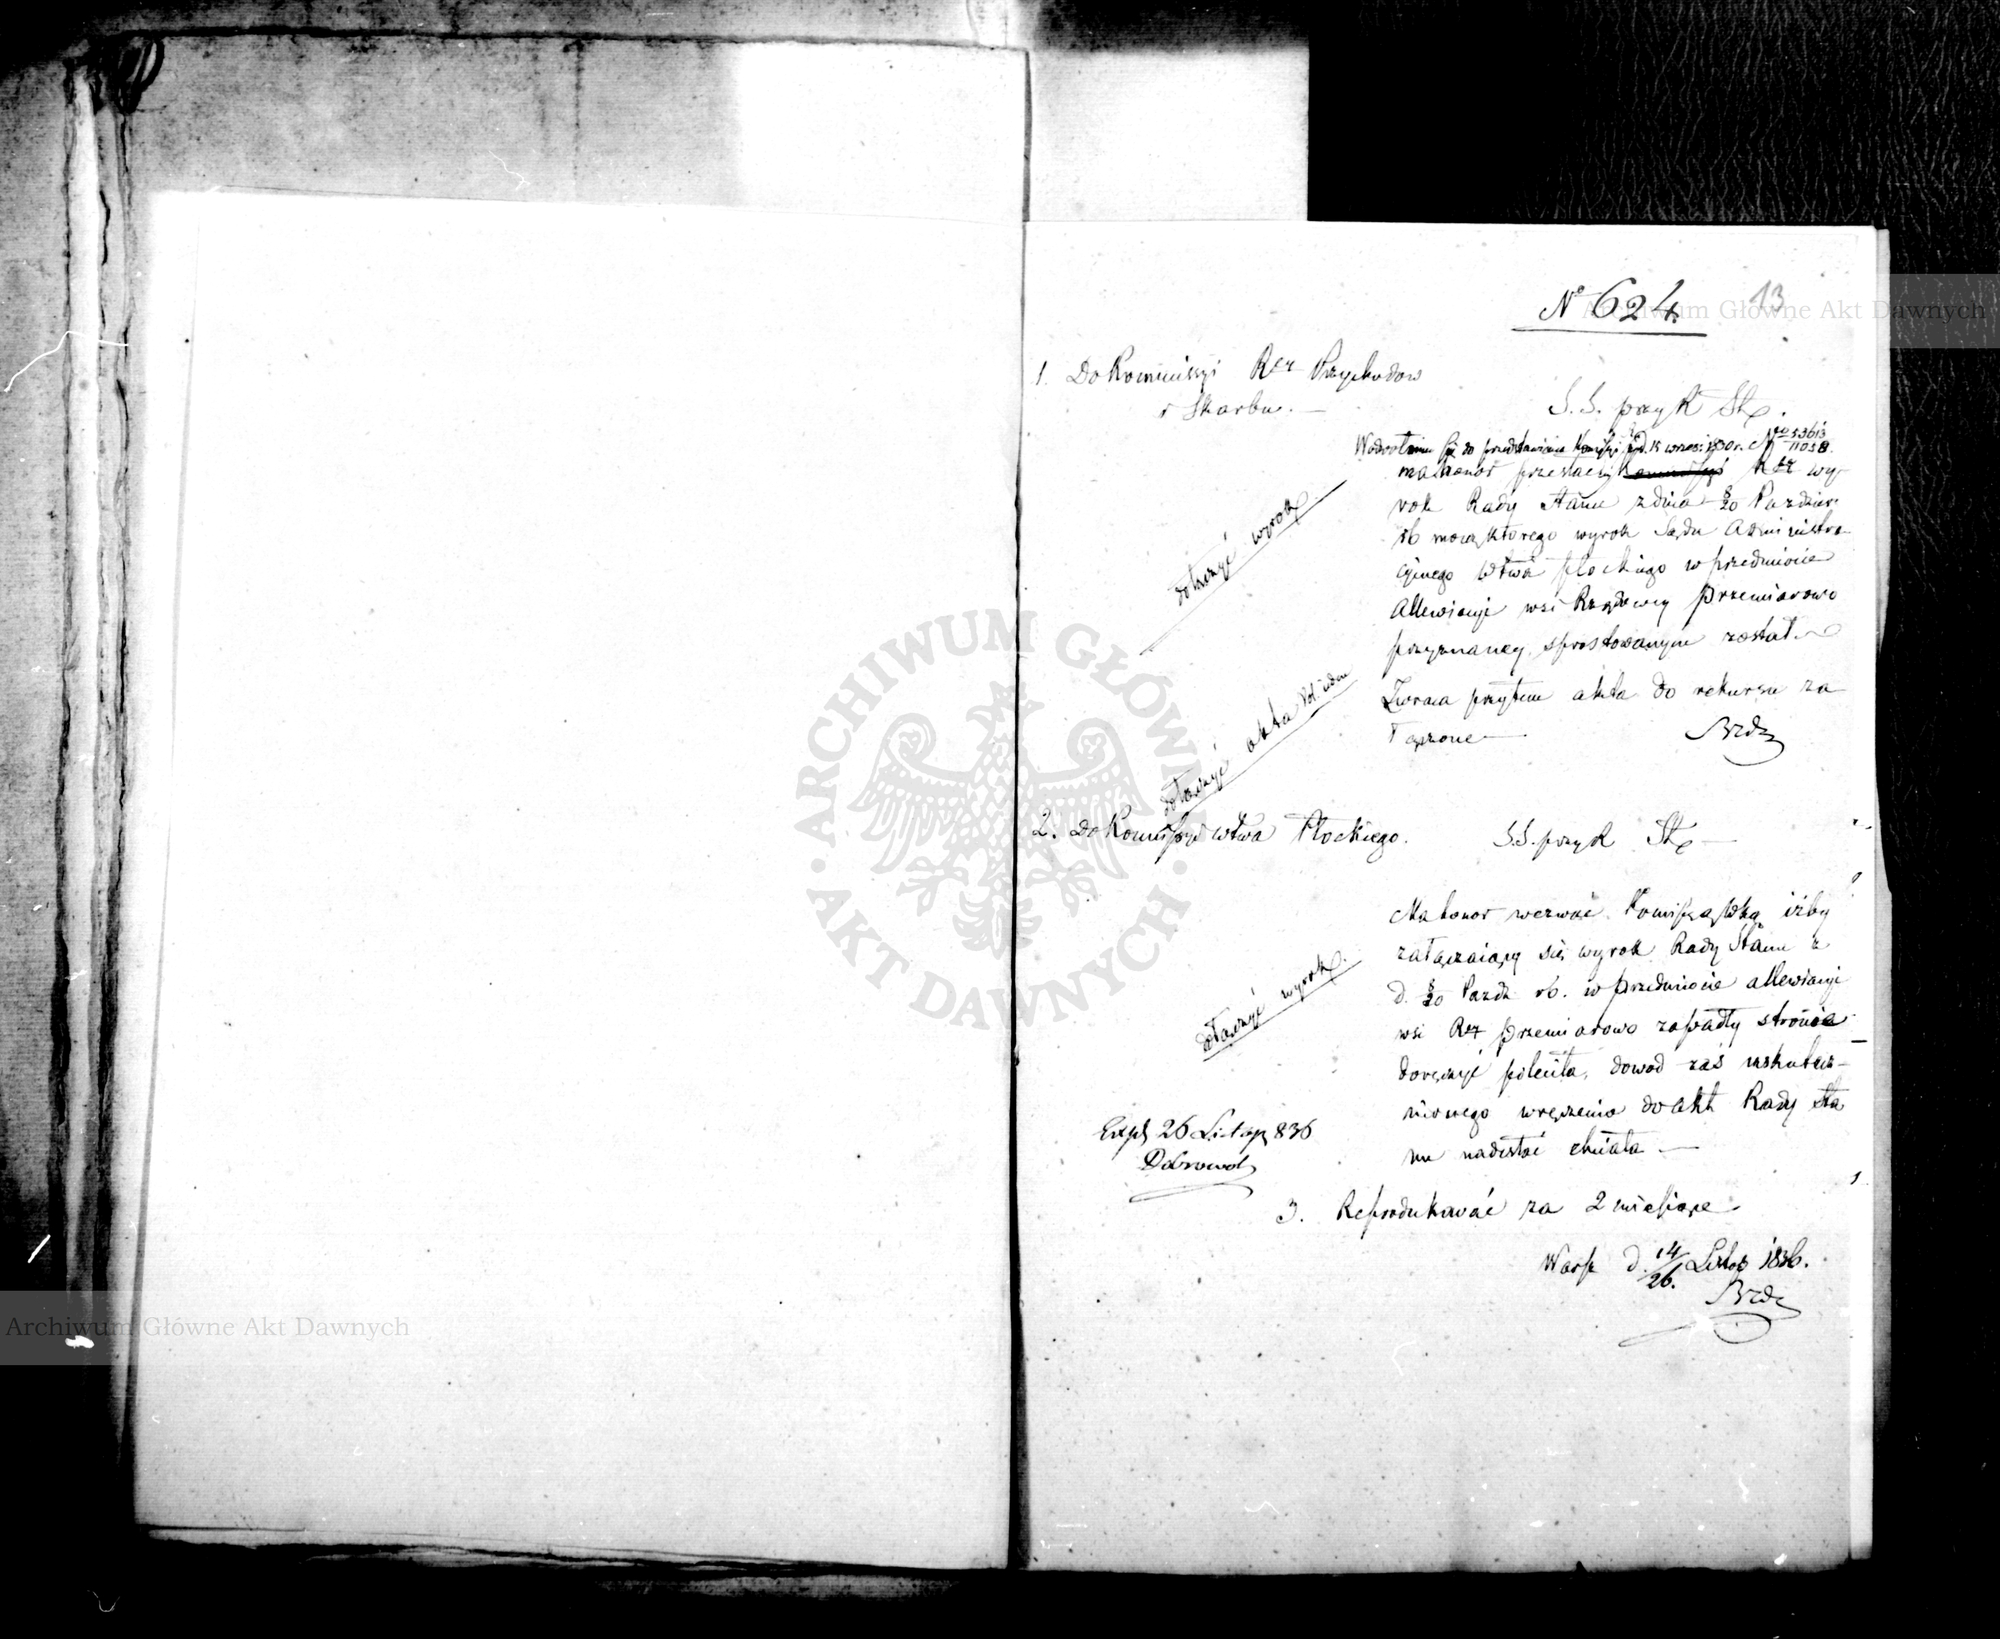 Nº 624
13
1. Do Kommissyi Rzr Przychodow
i Skarbu. —
S. S. przy R Stu.
Wodwołaniu się do przedstawienia Kommissyi z d. 15 wrześ. 1830 r. Nro 53613/11058
ma honor przesłać wy-
rok Rady Stanu z dnia 8/20 Paździer:
rb mocą którego wyrok Sądu Administra-
cyinego Wtwa płockiego w przedmiocie
Allewiacyi wsi Rządowey Przemiarowo
przyznaney, sprostowanym został.
Zwraca przytem akta do rekursu za
łączone —
Brdz
dołączyć wyrok
dołączyć akta
2. do Komissyi wtwa Płockiego.
S.S. przy R Stu —
Ma honor wezwać Komissyą Wką iżby
załączaiący się wyrok Rady Stanu z
d. 8/20 Paźdz rb. w przedmiocie allewiacyi
wsi Rzr Przemiarowo zapadły stronie
doręczyć poleciła, dowod zaś uskutecz-
nionego wręczenia do akt Rady Sta
nu nadesłać chciała —
dołączyć wyrok.
Exp 26 Listop 836
Dobrowol
3. Reprodukować za 2 miesiące
Warsz d. 14/26. Listop 1836.
Brdz
Archiwum Główne Akt Dawnych
ARCHIWUM GŁÓWNE
AKT DAWNYCH
Archiwum Główne Akt Dawnych